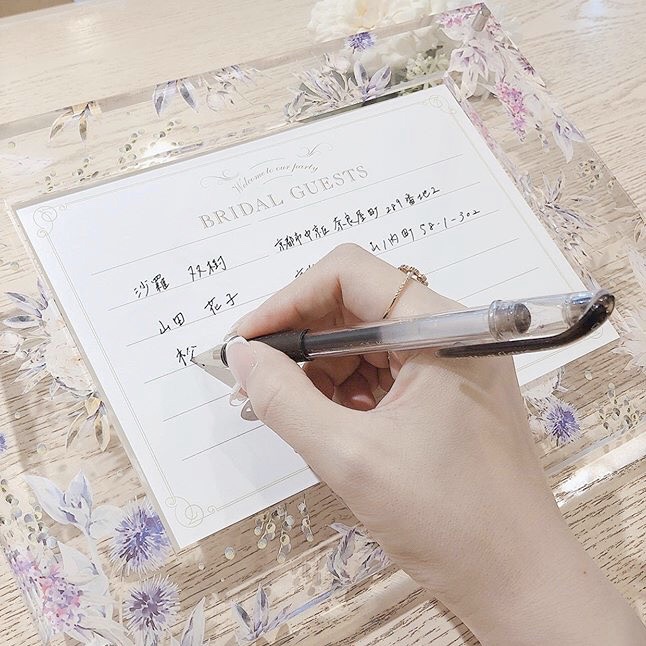 Welcome to our party
BRIDAL GUESTS
沙羅 双樹 京都市中京区奈良屋町289番地2
山田 花子 山ノ内町58-1-302
松